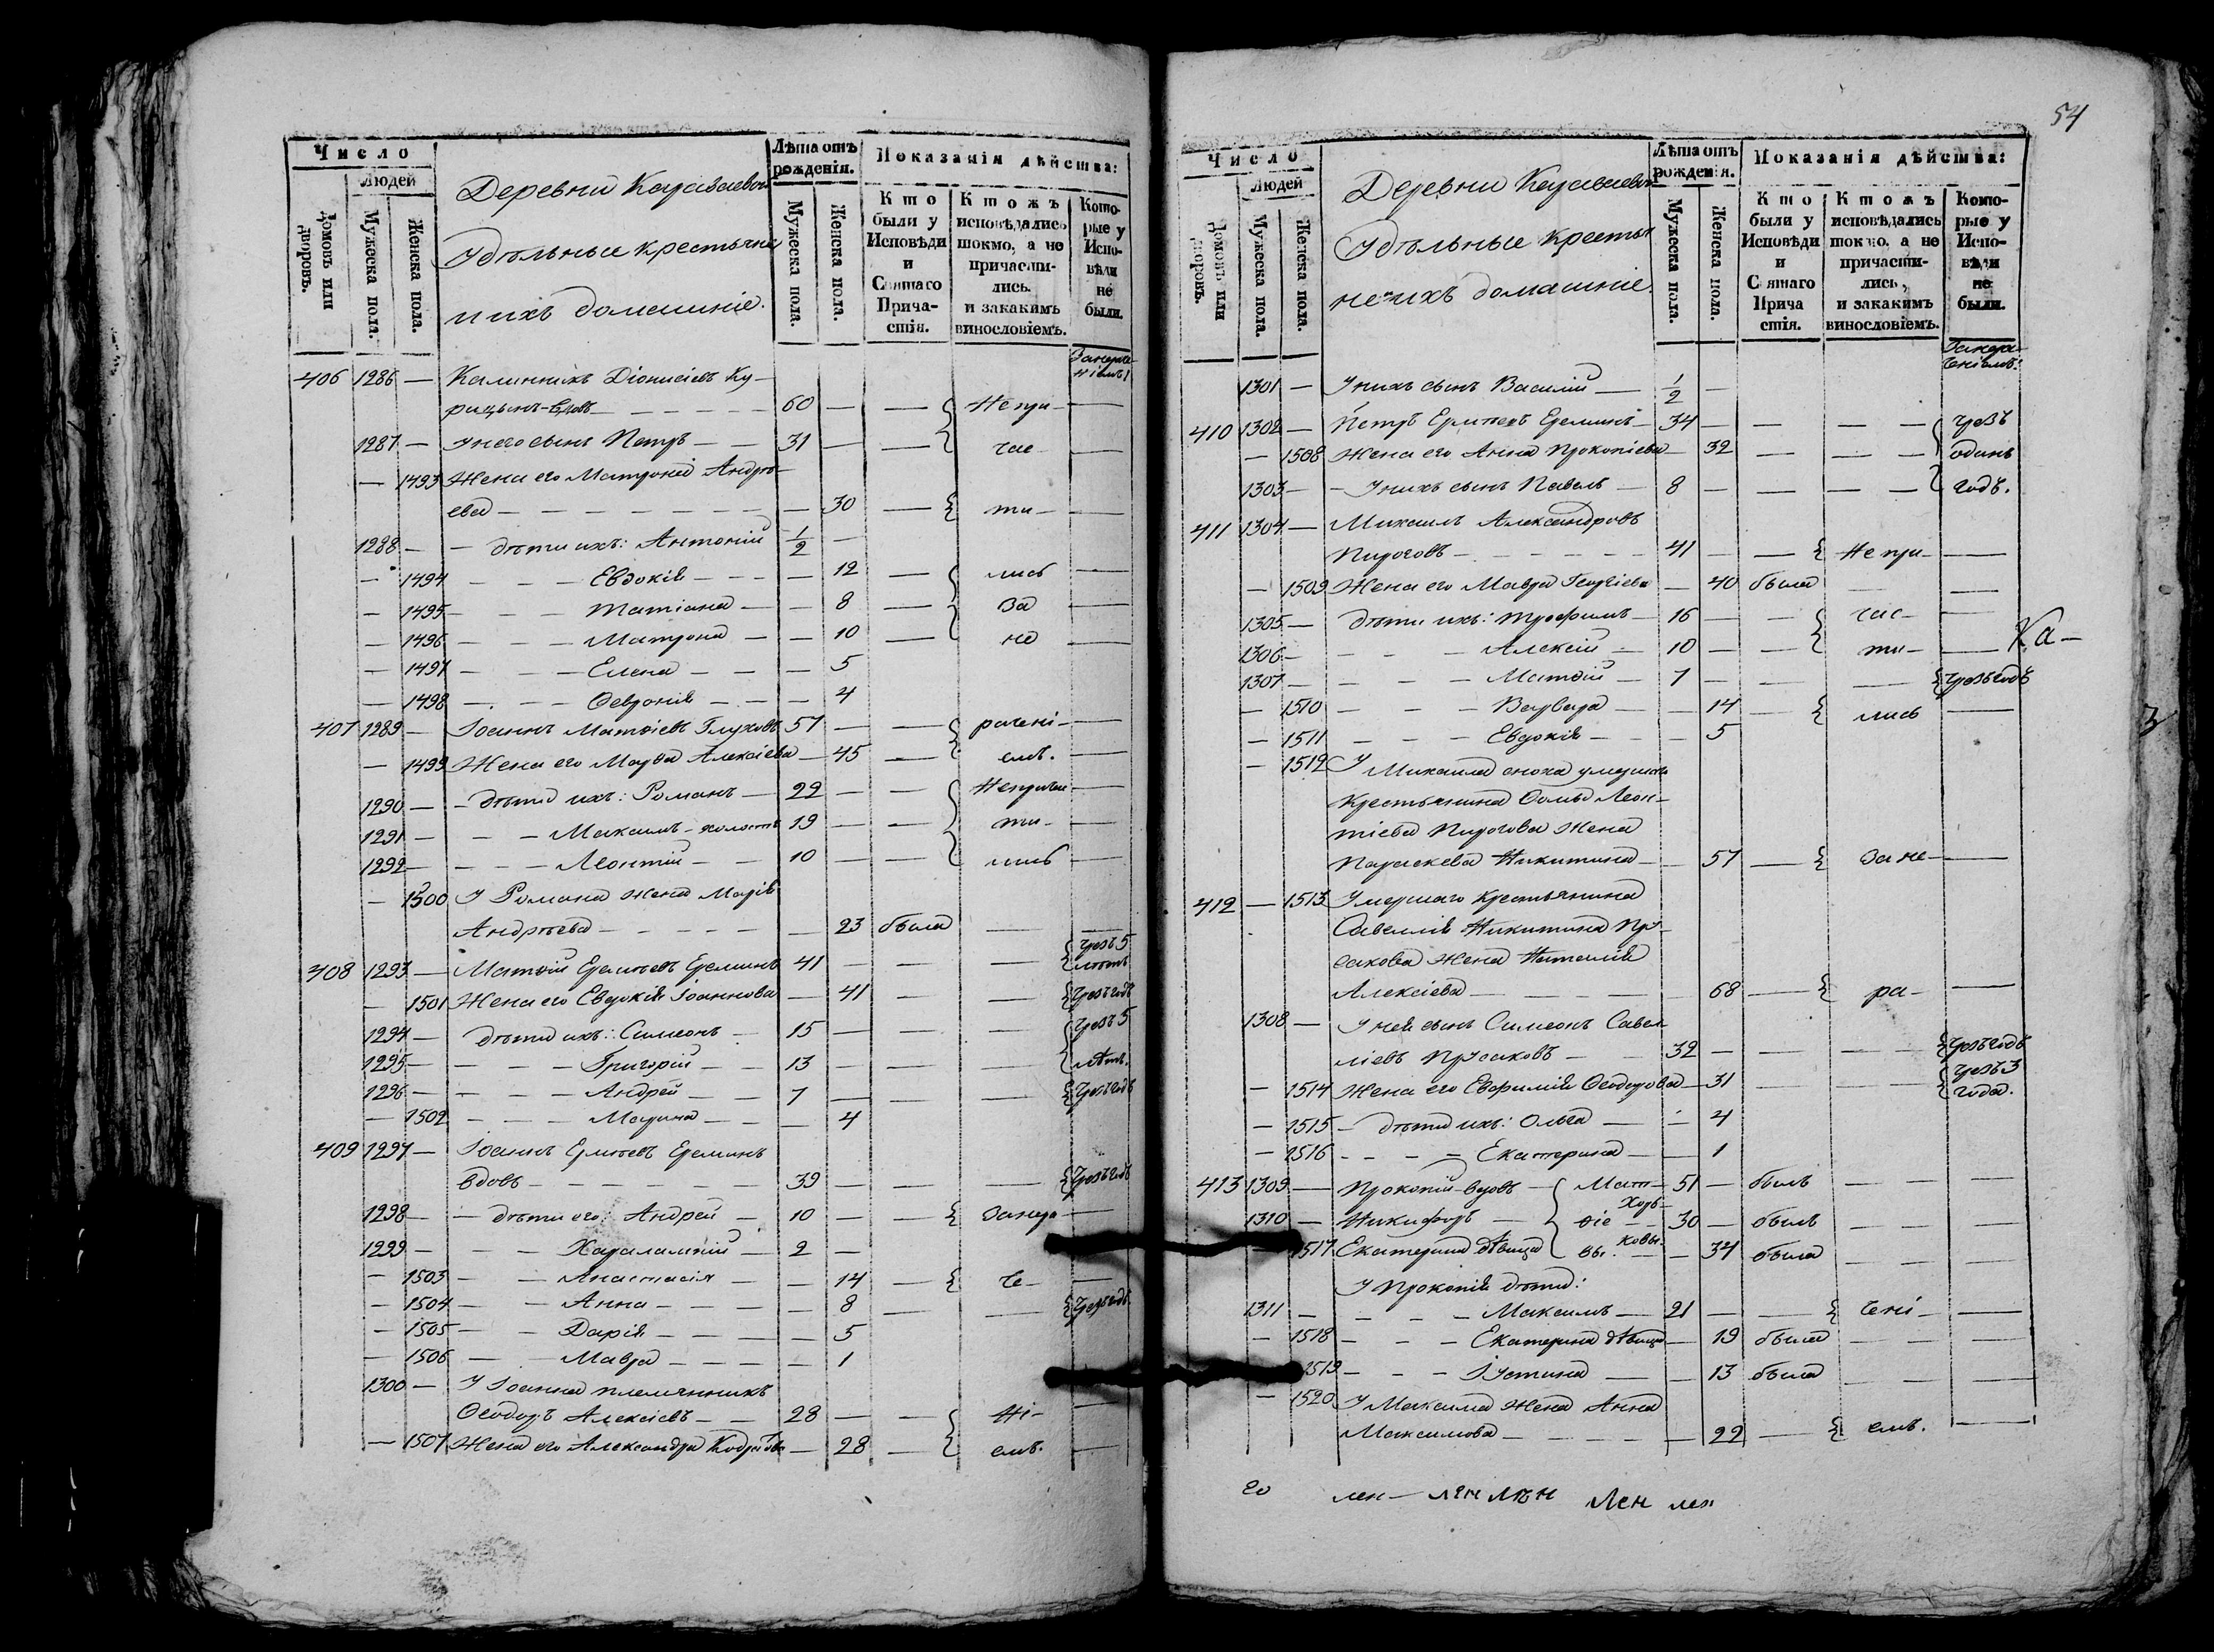 Число
Людей
Домовъ или дворовъ.
Мужеска пола.
Женска пола.
Деревни Караваевой
Удѣльные крестьяне
и ихъ домашніе.
Лѣта отъ рожденія.
Мужеска пола.
Женска пола.
Показанія дѣйства:
Кто были у Исповѣди и Святаго Прича-стія.
Ктожъ исповѣдались токмо, а не причасти-лись. и закакимъ винословіемъ.
Кото-рые у Испо-вѣди не были.
406 1286 — Калинникъ Діонисіевъ Ку-
рицынъ-вдовъ 60 — — Непри- —
1287 — У него сынъ Петръ 31 — — час- —
— 1493 Жена его Матрона Андрѣ-
ева — 30 — ти- —
1288 — дѣти ихъ: Антоній 1/2 —
— 1494 — Евдокія — 12 — лись —
— 1495 — Татіана — 8 — За —
— 1496 — Матрона — 10 — не —
— 1497 — Елена — 5
— 1498 — Ѳевронія — 4
407 1289 — Іоаннъ Матѳіевъ Глуховъ 57 — — рачені- —
— 1499 Жена его Марѳа Алексіева — 45 — емъ. —
1290 — дѣти ихъ: Романъ 22 — — Непричас —
1291 — Максимъ-холостъ 19 — — ти- —
1292 — Леонтій 10 — — лись —
— 1500 У Романа жена Марія
Андрѣева — 23 была — —
408 1293 — Матѳій Ермиевъ Ереминъ 41 — — — чрезъ 5 лѣтъ
— 1501 Жена его Евдокія Іоаннова — 41 — — чрезъ годъ
1294 — дѣти ихъ: Симеонъ 15 — — — чрезъ 5
1295 — Григорій 13 — — — лѣтъ.
1296 — Андрей 7 — — — чрезъ годъ
— 1502 — Марина — 4
409 1297 — Іоаннъ Ермиевъ Ереминъ
вдовъ 39 — — — чрезъ годъ
1298 — дѣти его: Андрей 10 — — Занера —
1299 — Харалампій 2 —
— 1503 — Анастасія — 14 — че- —
— 1504 — Анна — 8 — — чрезъ годъ
— 1505 — Дарія — 5
— 1506 — Мавра — 1
1300 — У Іоанна племянникъ
Ѳеодоръ Алексіевъ 28 — — ні- —
— 1507 Жена его Александра Кодратова — 28 — емъ. —
54
Число
Людей
Домовъ или дворовъ.
Мужеска пола.
Женска пола.
Деревни Караваевой
Удѣльные крестья
не и ихъ домашніе.
Лѣта отъ рожденія.
Мужеска пола.
Женска пола.
Показанія дѣйства:
Кто были у Исповѣди и Святаго Прича стія.
Ктожъ исповѣдались токмо, а не причасти-лись, и закакимъ винословіемъ.
Кото-рые у Испо-вѣди не были.
Занера-
ченіемъ:
1301 — У нихъ сынъ Василій 1/2 —
410 1302 — Петръ Ермиевъ Ереминъ 34 — — — чрезъ
— 1508 Жена его Анна Прокопіева — 32 — — одинъ
1303 — У нихъ сынъ Павелъ 8 — — — годъ.
411 1304 — Михаилъ Александровъ
Пироговъ 41 — — Непри- —
— 1509 Жена его Мавра Георгіева — 40 была — —
1305 — дѣти ихъ: Трофимъ 16 — — час- —
1306 — Алексій 10 — — ти- —
Ка-
1307 — Матѳій 7 — — — чрезъ годъ
— 1510 — Варвара — 14 — лись —
— 1511 — Евдокія — 5
— 1512 У Михаила сноха умершаго
крестьянина Ѳомы Леон-
тіева Пирогова жена
Параскева Никитина — 57 — За не- —
412 — 1513 Умершаго крестьянина
Савеллія Никитина Пру-
сакова жена Наталія
Алексіева — 68 — ра- —
1308 — У нея сынъ Симеонъ Савел
ліевъ Прусаковъ 32 — — — чрезъ годъ
— 1514 Жена его Евфимія Ѳеодорова — 31 — — чрезъ 3 года.
— 1515 — дѣти ихъ: Ольга — 4
— 1516 — Екатерина — 1
413 1309 — Прокопій-вдовъ Мат- 51 — былъ — —
1310 — Никифоръ ѳіе- Хорь- 30 — былъ — —
— 1517 Екатерина дѣвица вы. ковы. — 34 была — —
У Прокопія дѣти:
1311 — Максимъ 21 — — чені- —
— 1518 — Екатерина дѣвица — 19 была — —
1519 — Іустина — 13 была — —
— 1520 У Максима жена Анна
Максимова — 22 — емъ. —
лен- лен лѣн лен лен